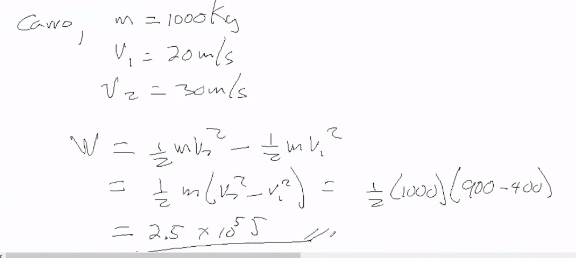 Carro, m = 1000 Kg
V₁ = 20 m/s
V₂ = 30 m/s
W = ½ m v₂² − ½ m v₁²
= ½ m (v₂² − v₁²) = ½ (1000) (900 − 400)
= 2.5 × 10⁵ J //.